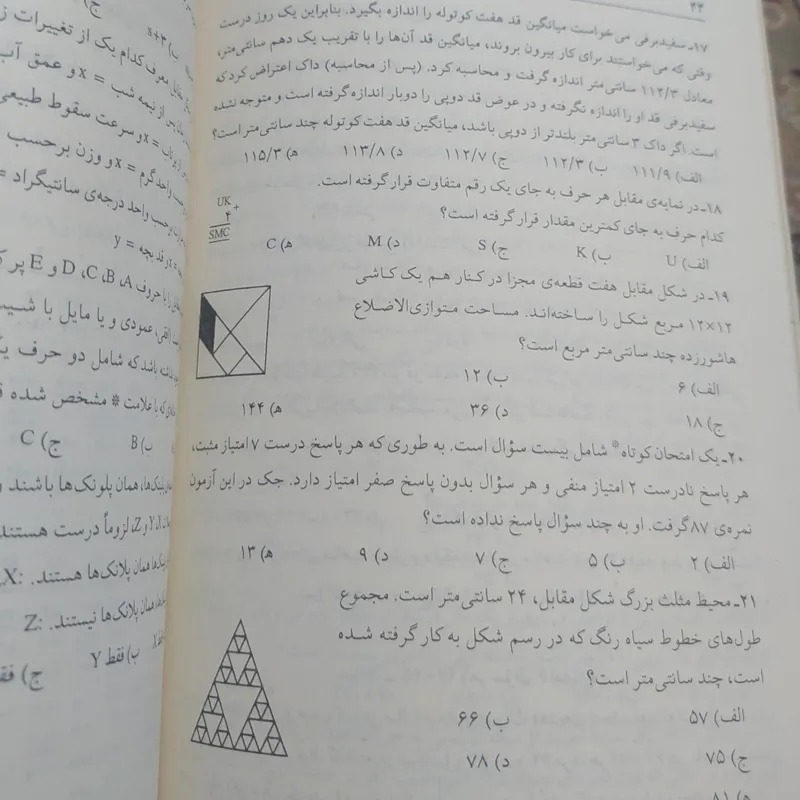 ۴۴
۱۷ـ سفیدبرفی می‌خواست میانگین قد هفت کوتوله را اندازه بگیرد. بنابراین یک روز درست
وقتی که می‌خواستند برای کار بیرون بروند، میانگین قد آن‌ها را با تقریب یک دهم سانتی‌متر،
معادل ۱۱۲/۳ سانتی‌متر اندازه گرفت و محاسبه کرد. (پس از محاسبه) داک اعتراض کرد که
سفیدبرفی قد او را اندازه نگرفته و در عوض قد دوپی را دوبار اندازه گرفته است و متوجه نشده
است. اگر داک ۳ سانتی‌متر بلندتر از دوپی باشد، میانگین قد هفت کوتوله چند سانتی‌متر است؟
الف) ۱۱۱/۹ ب) ۱۱۲/۳ ج) ۱۱۲/۷ د) ۱۱۳/۸ ه) ۱۱۵/۳
۱۸ـ در نمایه‌ی مقابل هر حرف به جای یک رقم متفاوت قرار گرفته است.
کدام حرف به جای کمترین مقدار قرار گرفته است؟
UK
+
۴
SMC
الف) U ب) K ج) S د) M ه) C
۱۹ـ در شکل مقابل هفت قطعه‌ی مجزا در کنار هم یک کاشی
۱۲×۱۲ مربع شکل را ساخته‌اند. مساحت متوازی‌الاضلاع
هاشورزده چند سانتی‌متر مربع است؟
الف) ۶ ب) ۱۲
ج) ۱۸ د) ۳۶ ه) ۱۴۴
۲۰ـ یک امتحان کوتاه* شامل بیست سؤال است. به طوری که هر پاسخ درست ۷ امتیاز مثبت،
هر پاسخ نادرست ۲ امتیاز منفی و هر سؤال بدون پاسخ صفر امتیاز دارد. جک در این آزمون
نمره‌ی ۸۷ گرفت. او به چند سؤال پاسخ نداده است؟
الف) ۲ ب) ۵ ج) ۷ د) ۹ ه) ۱۳
۲۱ـ محیط مثلث بزرگ شکل مقابل، ۲۴ سانتی‌متر است. مجموع
طول‌های خطوط سیاه رنگ که در رسم شکل به کار گرفته شده
است، چند سانتی‌متر است؟
الف) ۵۷ ب) ۶۶
ج) ۷۵ د) ۷۸
ه) ۸۱
ب) x+۳ ج)
مقابل معرف کدام یک از تغییرات
پس از نیمه شب = x و عمق آب
x = و سرعت سقوط طبیعی
حسب واحد گرم = x و وزن برحسب
برحسب واحد درجه‌ی سانتیگراد =
x = و قد بچه = y
با حروف A، B، C، D و E پر
عمودی و یا مایل با
باشد که شامل دو حرف
که با علامت * مشخص شده
ب) B ج) C
همان پلونک‌ها باشند و
X، Y و Z، لزوماً درست هستند
همان پلانک‌ها هستند. X:
همان پلانک‌ها نیستند. Z:
ب) فقط Y ج)